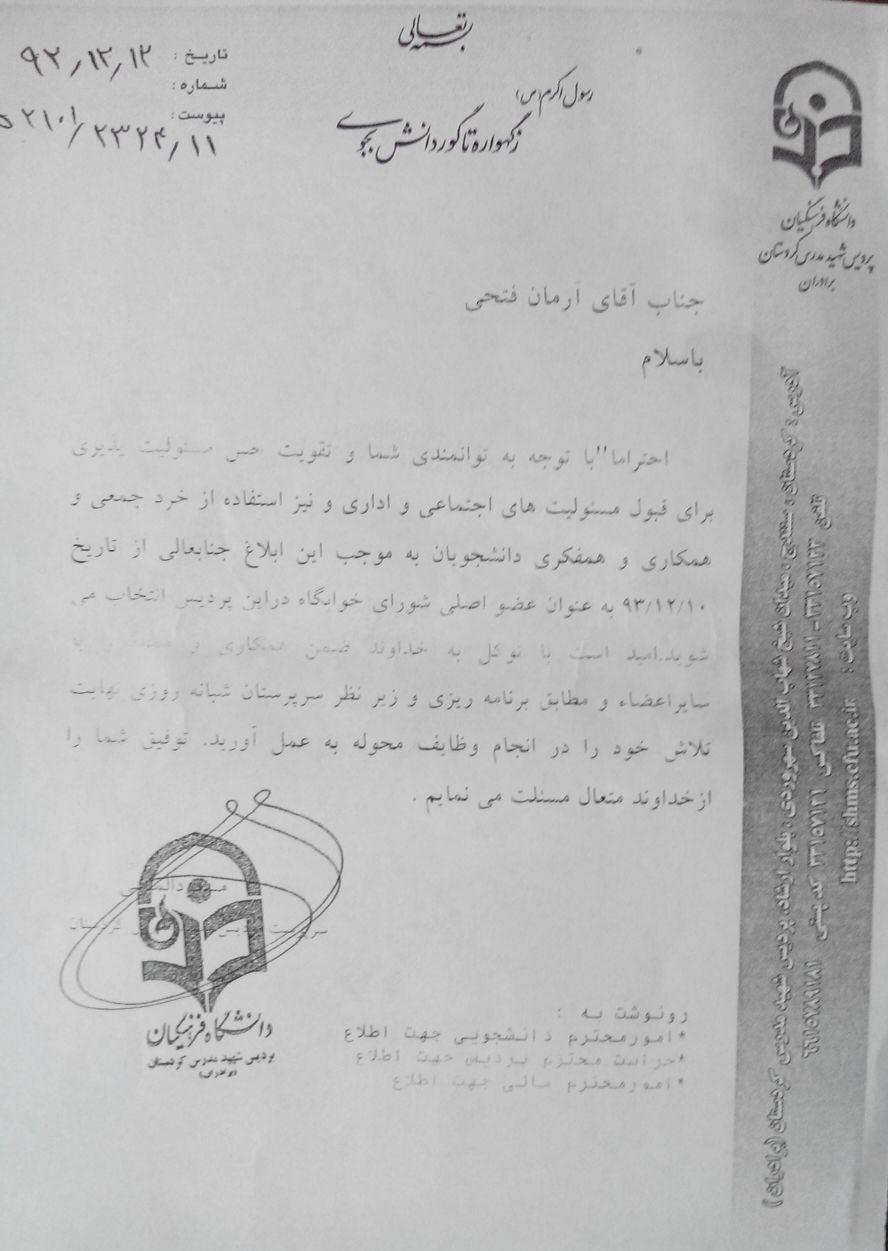 بسمه تعالی
رسول اکرم (س)
زگهواره تا گور دانش بجوی
تاریخ : ۹۲/۱۲/۱۲
شماره :
پیوست :
۲۳۲۴/۱۱
دانشگاه فرهنگیان
پردیس شهید مدرس کردستان
برادران
جناب آقای آرمان فتحی
باسلام
احتراما"با توجه به توانمندی شما و تقویت حس مسئولیت پذیری
برای قبول مسئولیت های اجتماعی و اداری و نیز استفاده از خرد جمعی و
همکاری و همفکری دانشجویان به موجب این ابلاغ جنابعالی از تاریخ
۹۳/۱۲/۱۰ به عنوان عضو اصلی شورای خوابگاه دراین پردیس انتخاب می
شوید.امید است با توکل به خداوند ضمن همکاری و
سایراعضاء و مطابق برنامه ریزی و زیر نظر سرپرستان شبانه روزی نهایت
تلاش خود را در انجام وظایف محوله به عمل آورید. توفیق شما را
ازخداوند متعال مسئلت می نمایم .
کردستان
دانشگاه فرهنگیان
پردیس شهید مدرس کردستان
(برادران)
رونوشت به :
*امورمحترم دانشجویی جهت اطلاع
*حراست محترم پردیس جهت اطلاع
*امورمحترم مالی جهت اطلاع
آدرس : کردستان ، سنندج ، میدان شیخ شهاب الدین سهروردی ، بلوار ارشاد، پردیس شهید مدرس کردستان (برادران)
تلفن
فاکس
کد پستی
وب سایت : http://shms.cfu.ac.ir